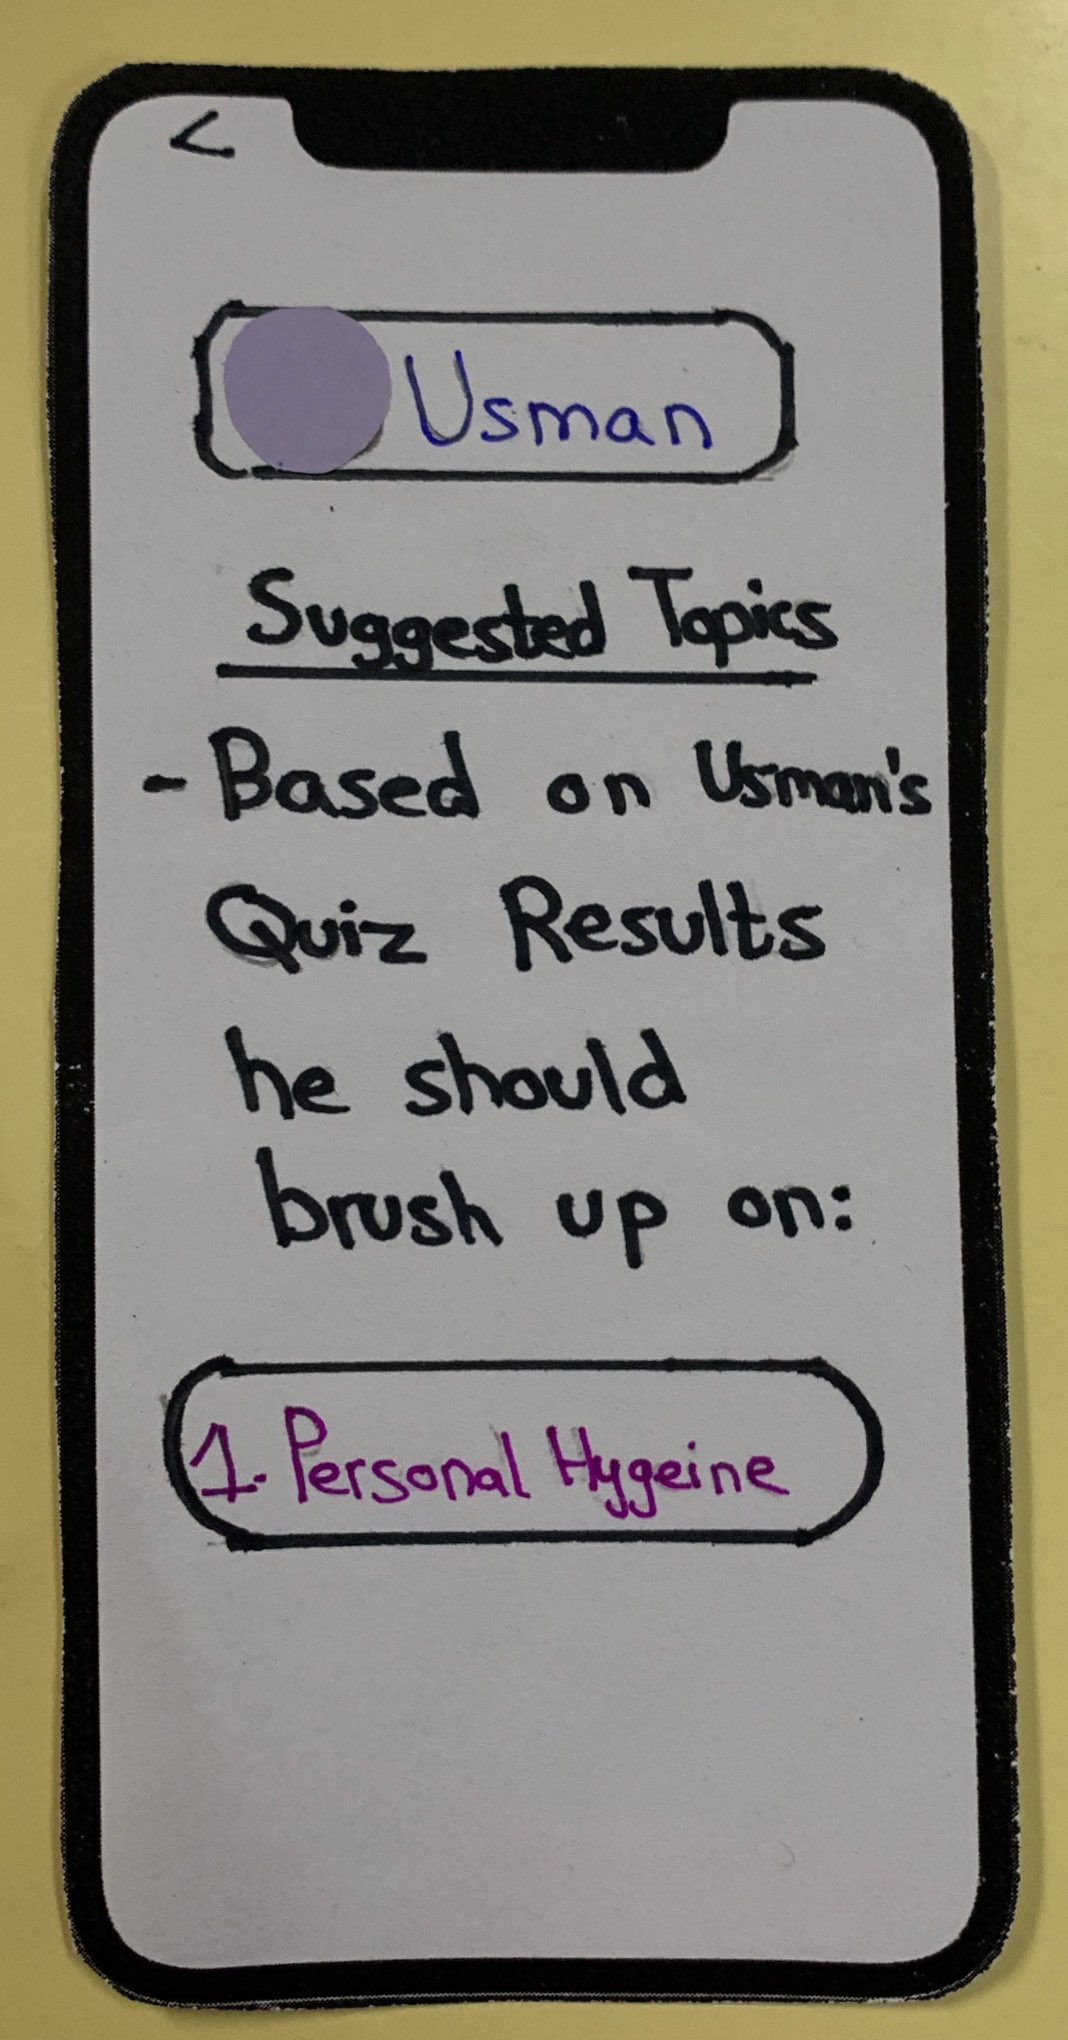 <
Usman
Suggested Topics
- Based on Usman's
Quiz Results
he should
brush up on:
1. Personal Hygeine